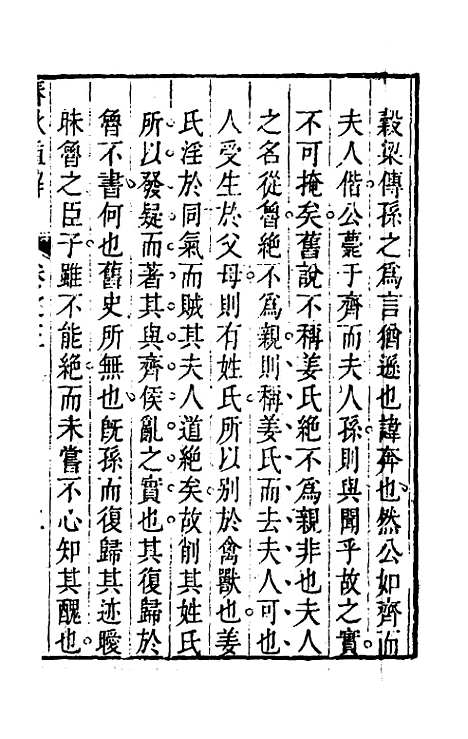 穀梁傳孫之爲言猶遜也諱奔也然公如齊而
夫人偕公薨于齊而夫人孫則與聞乎故之實
不可掩矣舊說不稱姜氏絕不爲親非也夫人
之名從魯絕不爲親則稱姜氏而去夫人可也
人受生於父母則有姓氏所以別於禽獸也姜
氏淫於同氣而賊其夫人道絕矣故削其姓氏
所以發疑而著其與齊侯亂之實也其復歸於
魯不書何也舊史所無也旣孫而復歸其迹曖
昧魯之臣子雖不能絕而未嘗不心知其醜也
春秋直解